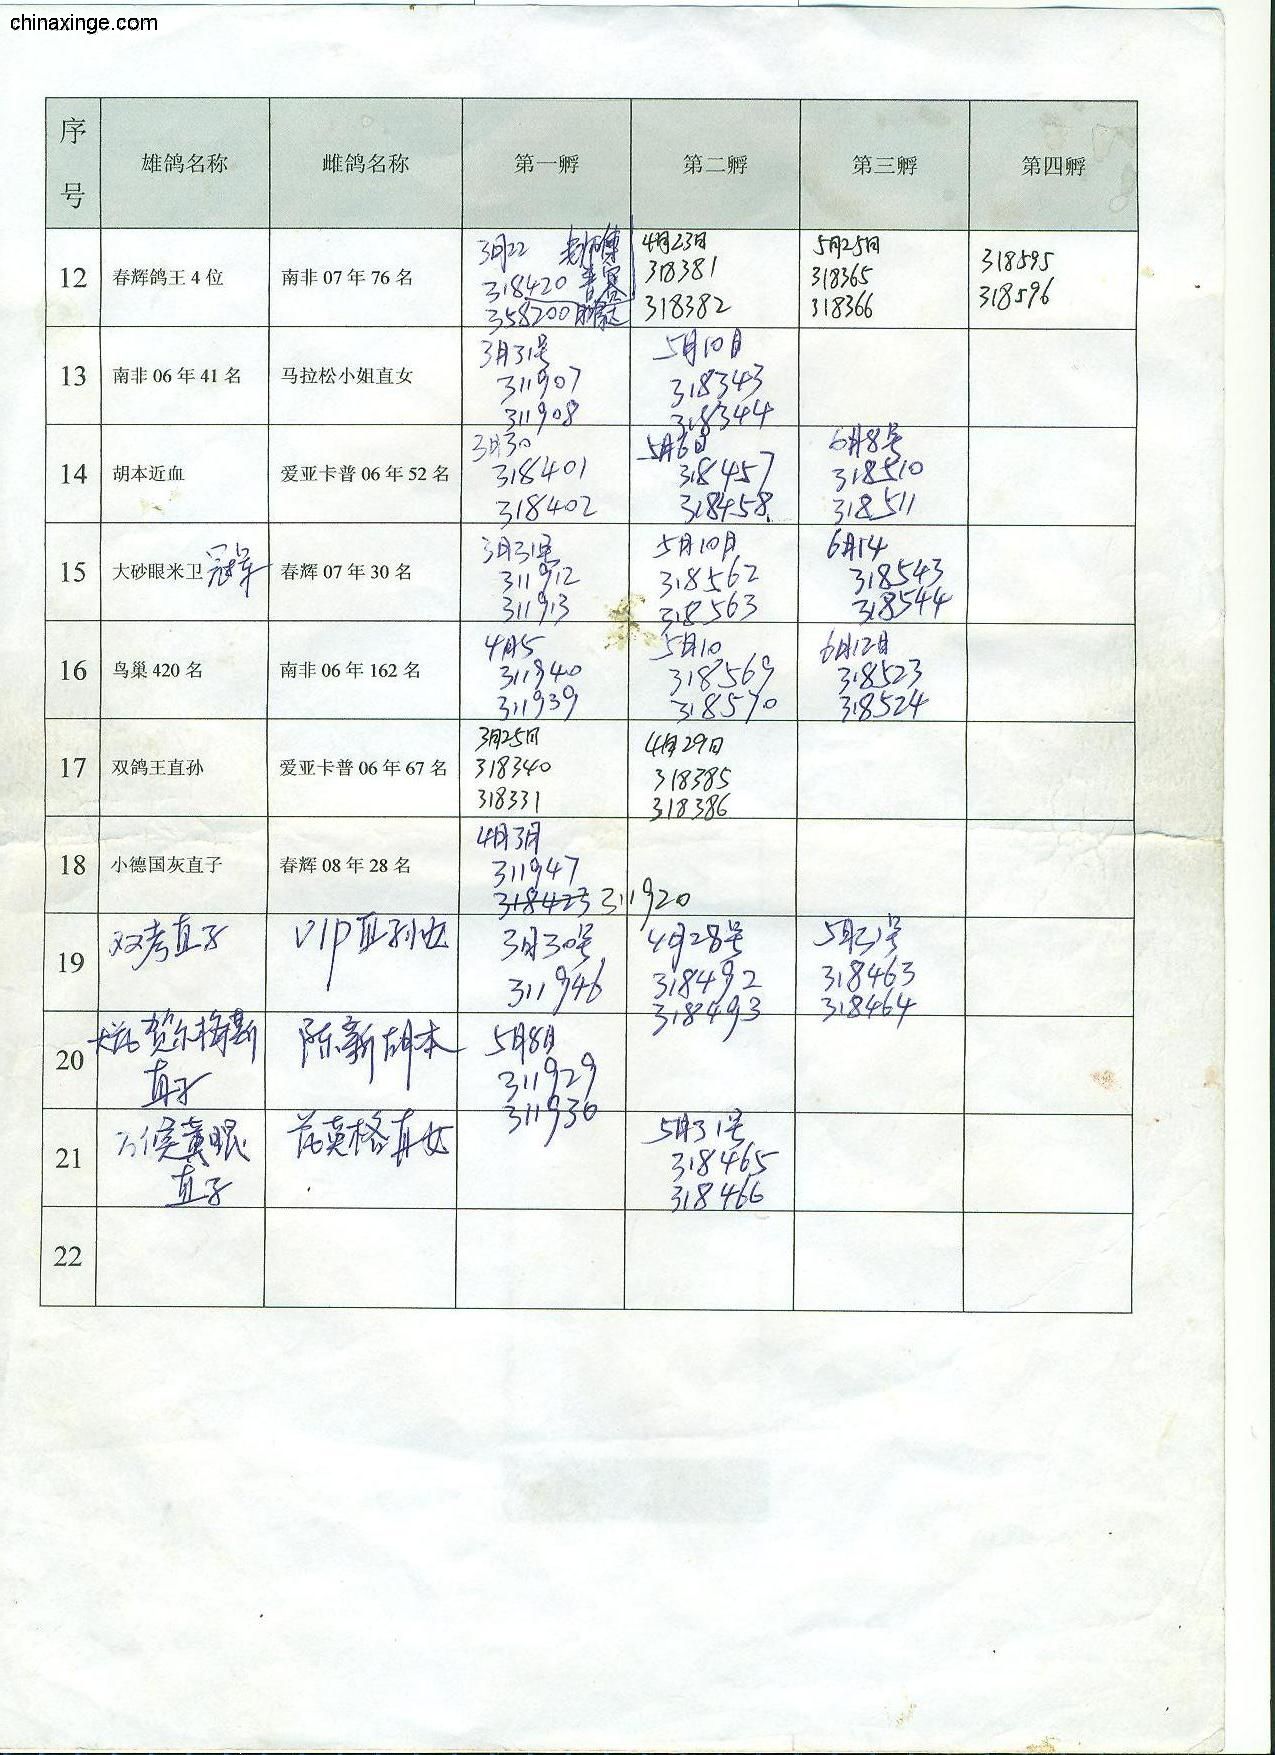 chinaxinge.com
序号 雄鸽名称 雌鸽名称 第一孵 第二孵 第三孵 第四孵
12 春辉鸽王4位 南非07年76名 3月22 318420 358200 4月23日 318381 318382 5月25日 318365 318366 318595 318596
13 南非06年41名 马拉松小姐直女 3月31号 311907 311908 5月10日 318343 318344
14 胡本近血 爱亚卡普06年52名 3月30 318401 318402 5月6日 318457 318458. 6月8号 318510 318511
15 大砂眼米卫冠军 春辉07年30名 3月31号 311912 311913 5月10日 318562 318563 6月14 318543 318544
16 鸟巢420名 南非06年162名 4月5 311940 311939 5月10 318569 318570 6月12日 318523 318524
17 双鸽王直孙 爱亚卡普06年67名 3月25日 318340 318331 4月29日 318385 318386
18 小德国灰直子 春辉08年28名 4月3日 311947 318423 311920
19 双考直子 VIP直孙女 3月30号 311946 4月28号 318492 318493 5月31号 318463 318464
20 贺尔梅斯直子 陈新胡本 5月8日 311929 311930
21 黄眼直子 英格直女 5月31号 318465 318466
22